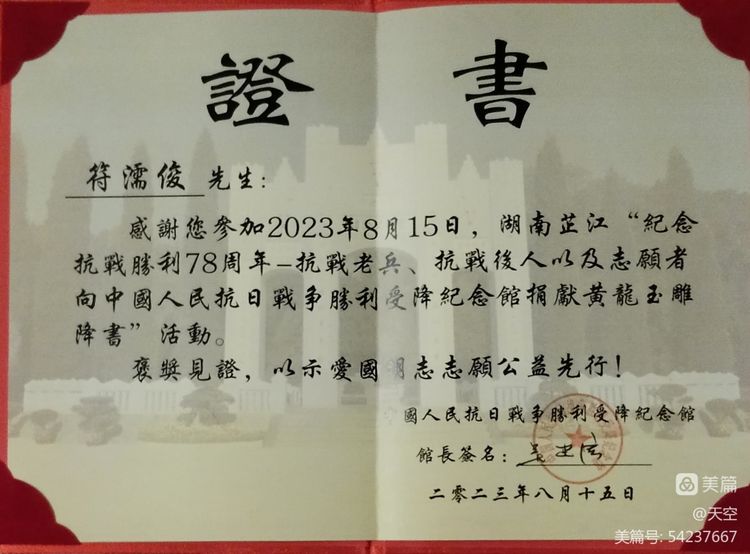 證 書
符濡俊 先生：
感謝您參加2023年8月15日，湖南芷江“紀念
抗戰勝利78周年-抗戰老兵、抗戰後人以及志願者
向中國人民抗日戰爭勝利受降紀念館捐獻黃龍玉雕
降書”活動。
褒獎見證，以示愛國明志志願公益先行！
國人民抗日戰爭勝利受降紀念館
館長簽名：
二零二三年八月十五日
美篇
@天空
美篇号: 54237667